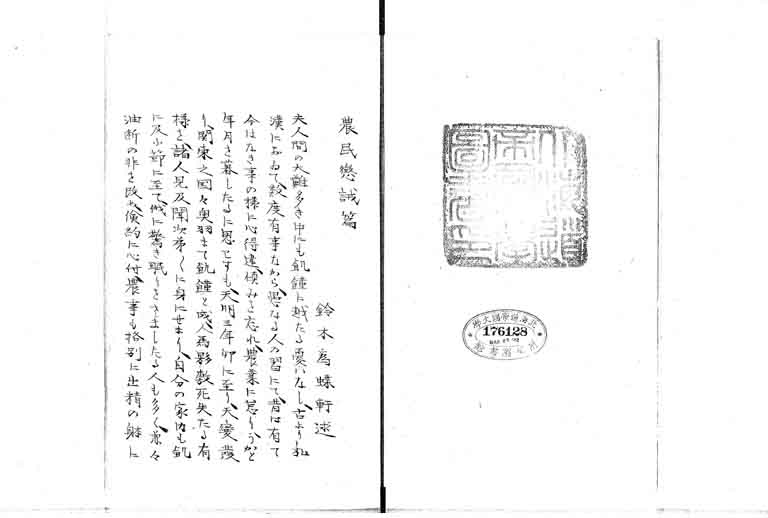 農民懲誡篇
鈴木為蝶軒述
夫人間の大難多き中にも飢饉に越たる憂ハなし古より和
漢におゐて数度有事なから愚なる人の習にて昔は有て
今はなき事の様に心得違慎みを忘れ農業に怠りうかと
年月を暮したるに思ときも天明三年卯に至り天変発
り関東之国々奥羽まて飢饉と成人馬夥敷死失たる有
様を諸人見及聞次第〳〵に身にせまり自分の家内も飢
に及小節に至て俄に驚き眠りをさましたる人も多く兼々
油断の非を改め倹約に心付農事も格別に出精の躰に
176128